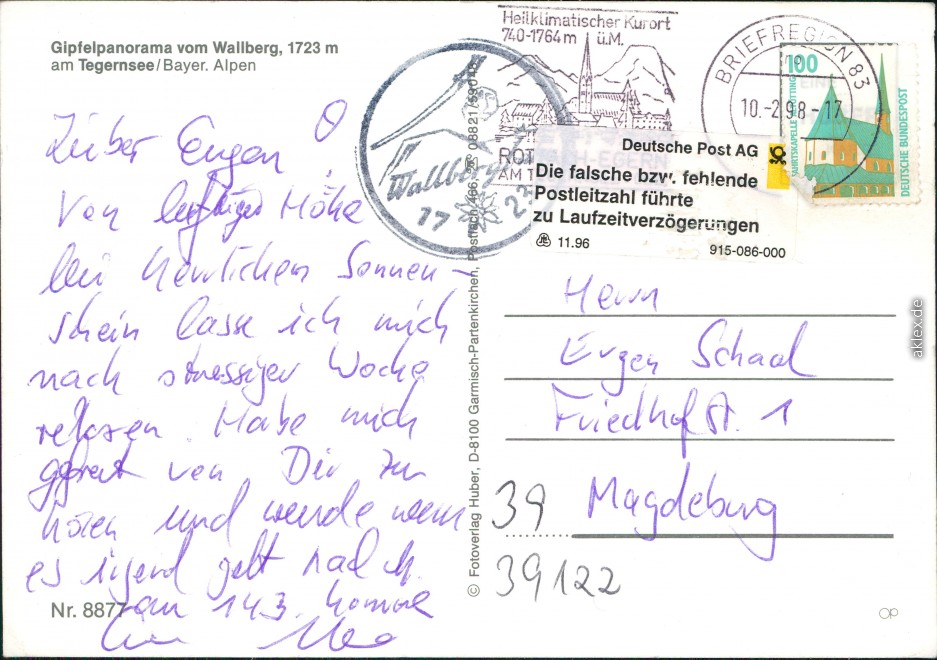 Gipfelpanorama vom Wallberg, 1723 m
am Tegernsee/Bayer. Alpen
Lieber Eugen!
Von luftiger Höhe
bei herrlichem Sonnen-
schein lasse ich mich
nach stressiger Woche
relaxen. Habe mich
gefreut von Dir zu
hören und werde wenn
es irgend geht nach M.
am 14.3. komme
Nr. 8877
Wallberg
17 23
Heilklimatischer Kurort
740-1764 m ü.M.
ROT
H-EGERN
AM T
BRIEFREGION 83
10.-2.98-17
100
DEUTSCHE BUNDESPOST
Deutsche Post AG
Die falsche bzw. fehlende
Postleitzahl führte
zu Laufzeitverzögerungen
11.96 915-086-000
© Fotoverlag Huber, D-8100 Garmisch-Partenkirchen, Postfach 466, 08821/59048
Herrn
Eugen Schaal
Friedhofstr. 1
39 Magdeburg
39122
aklex.de